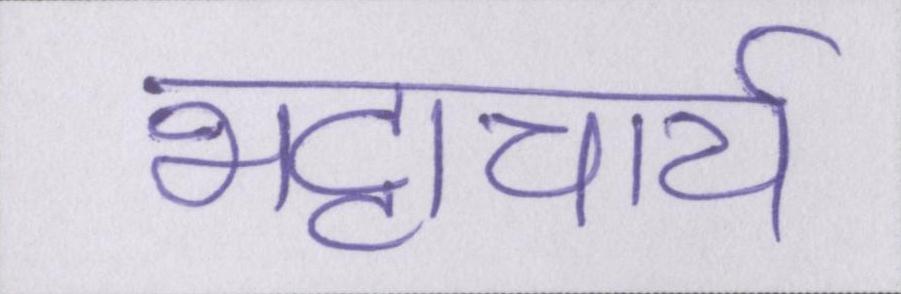 भट्टाचार्य